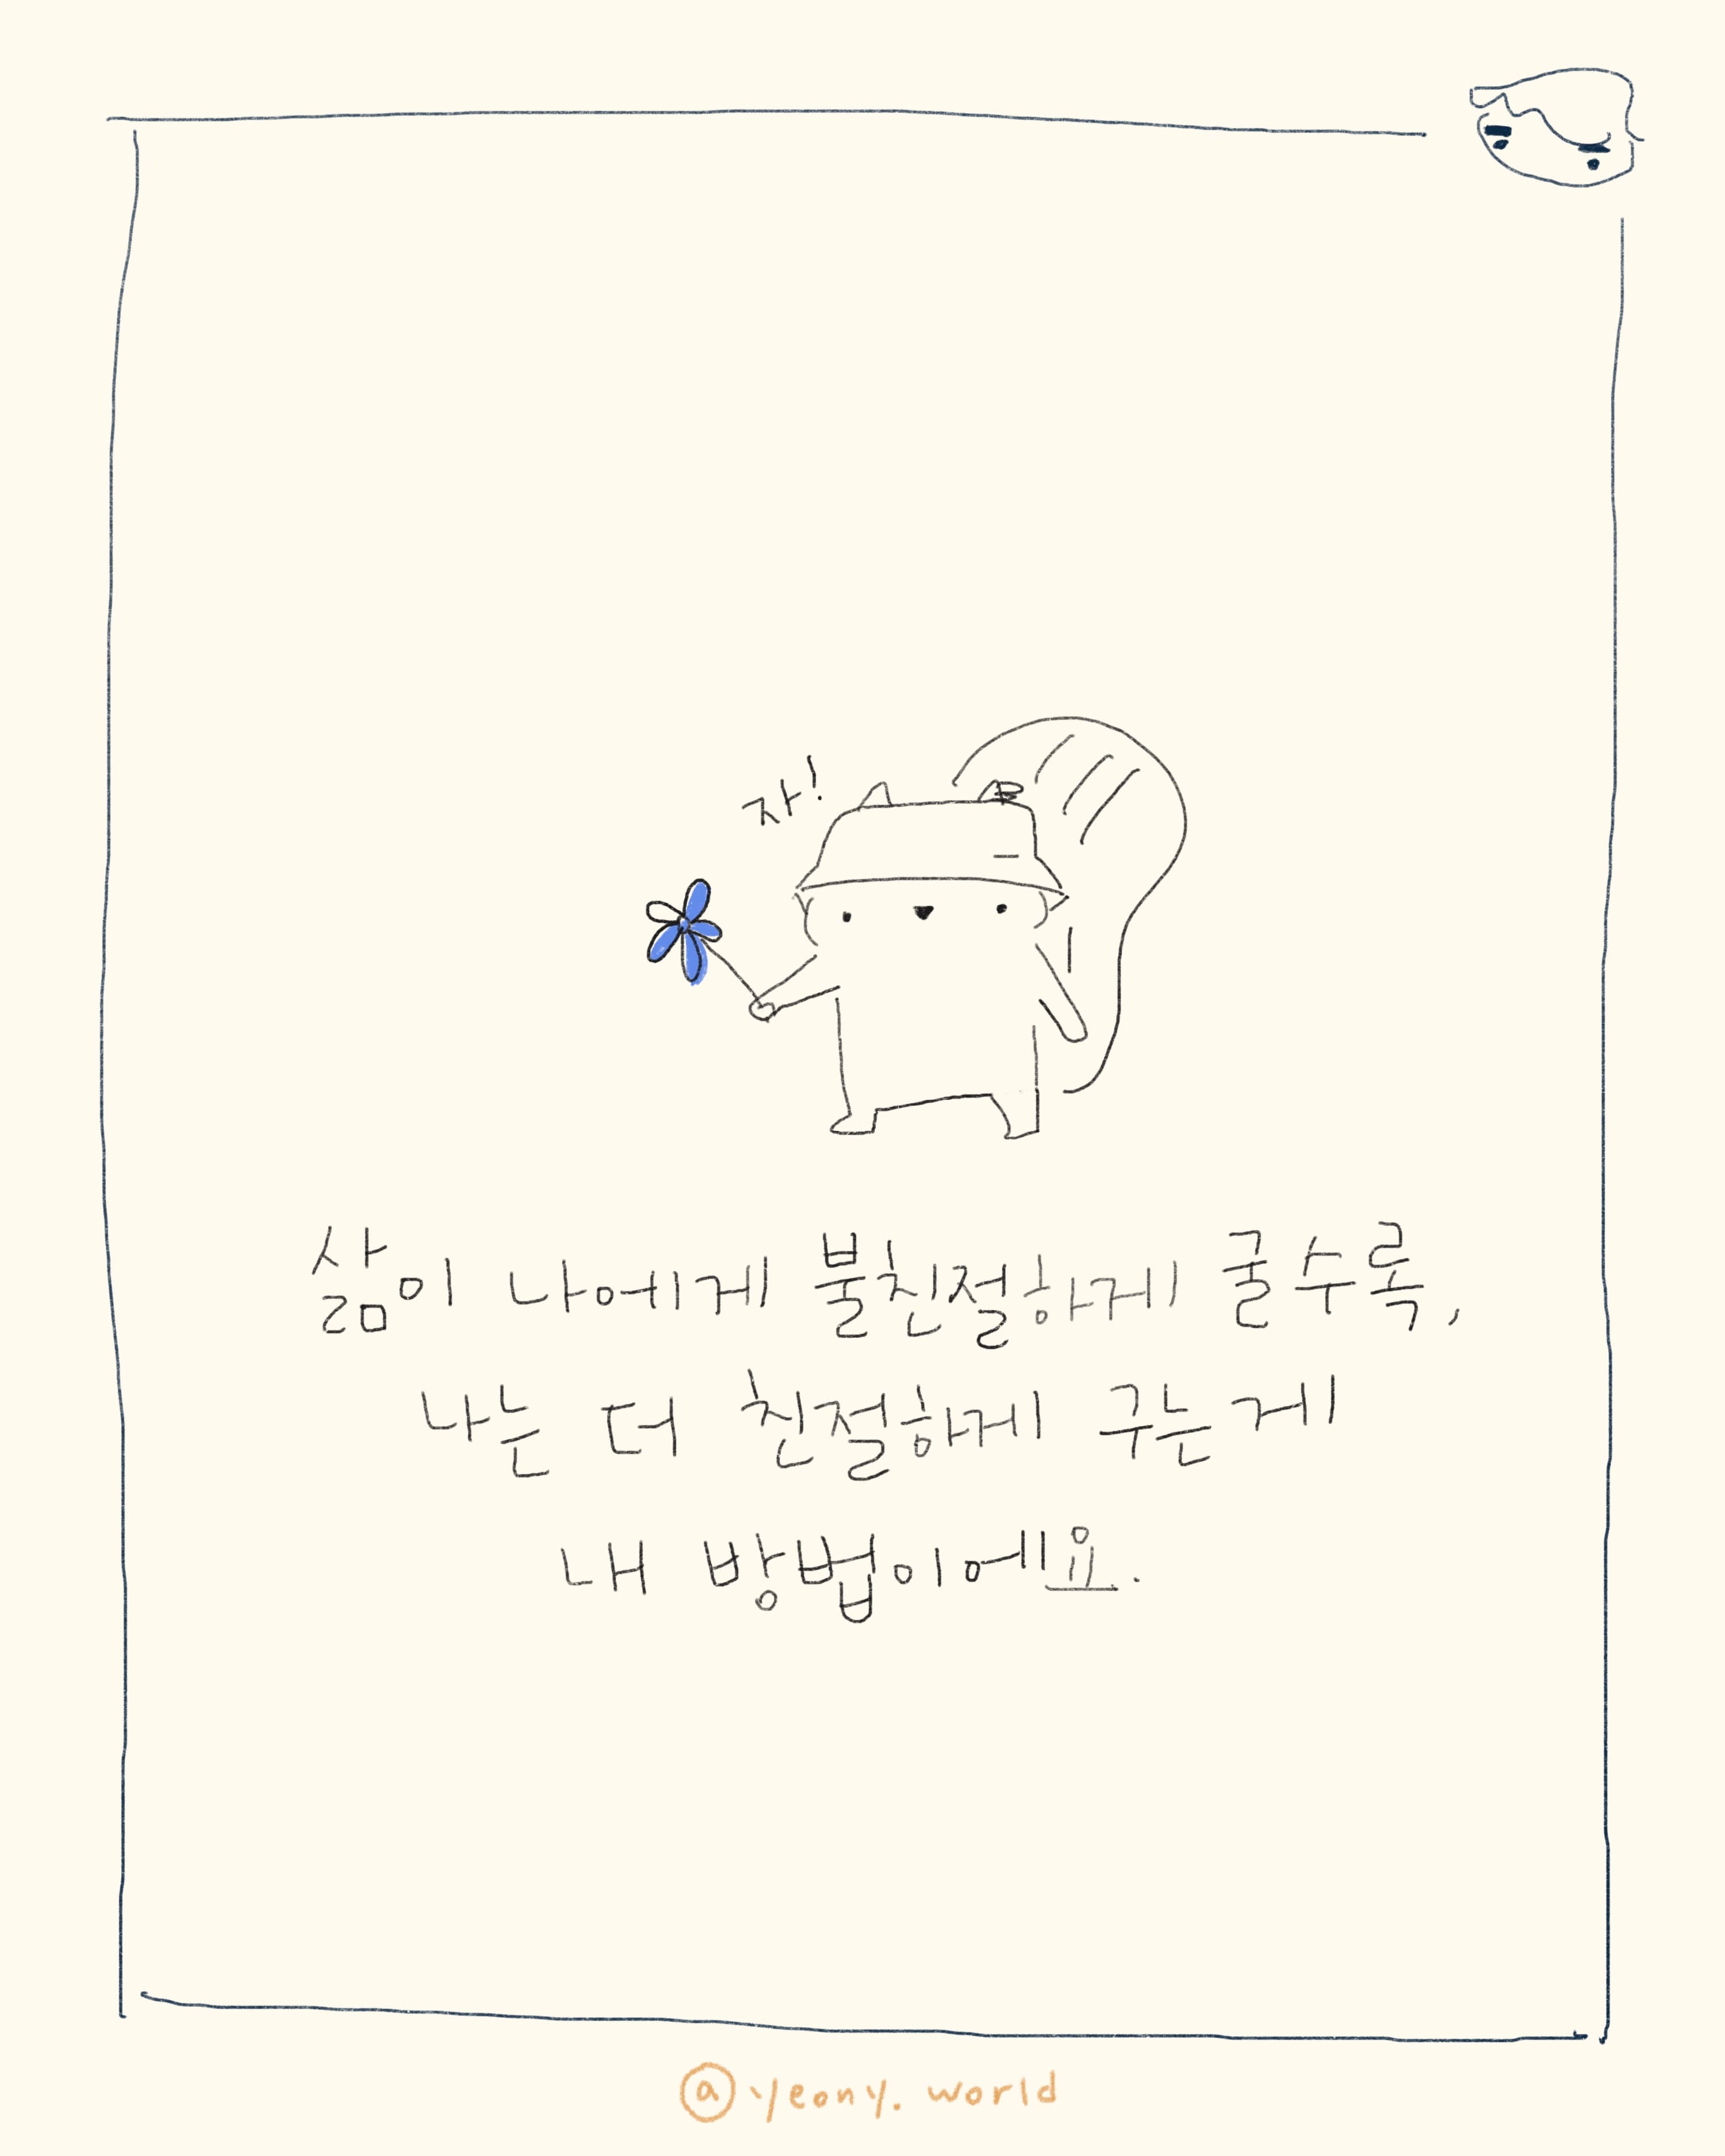 자!
삶이 나에게 불친절하게 굴수록,
나는 더 친절하게 구는게
내 방법이에요.
@yeony.world